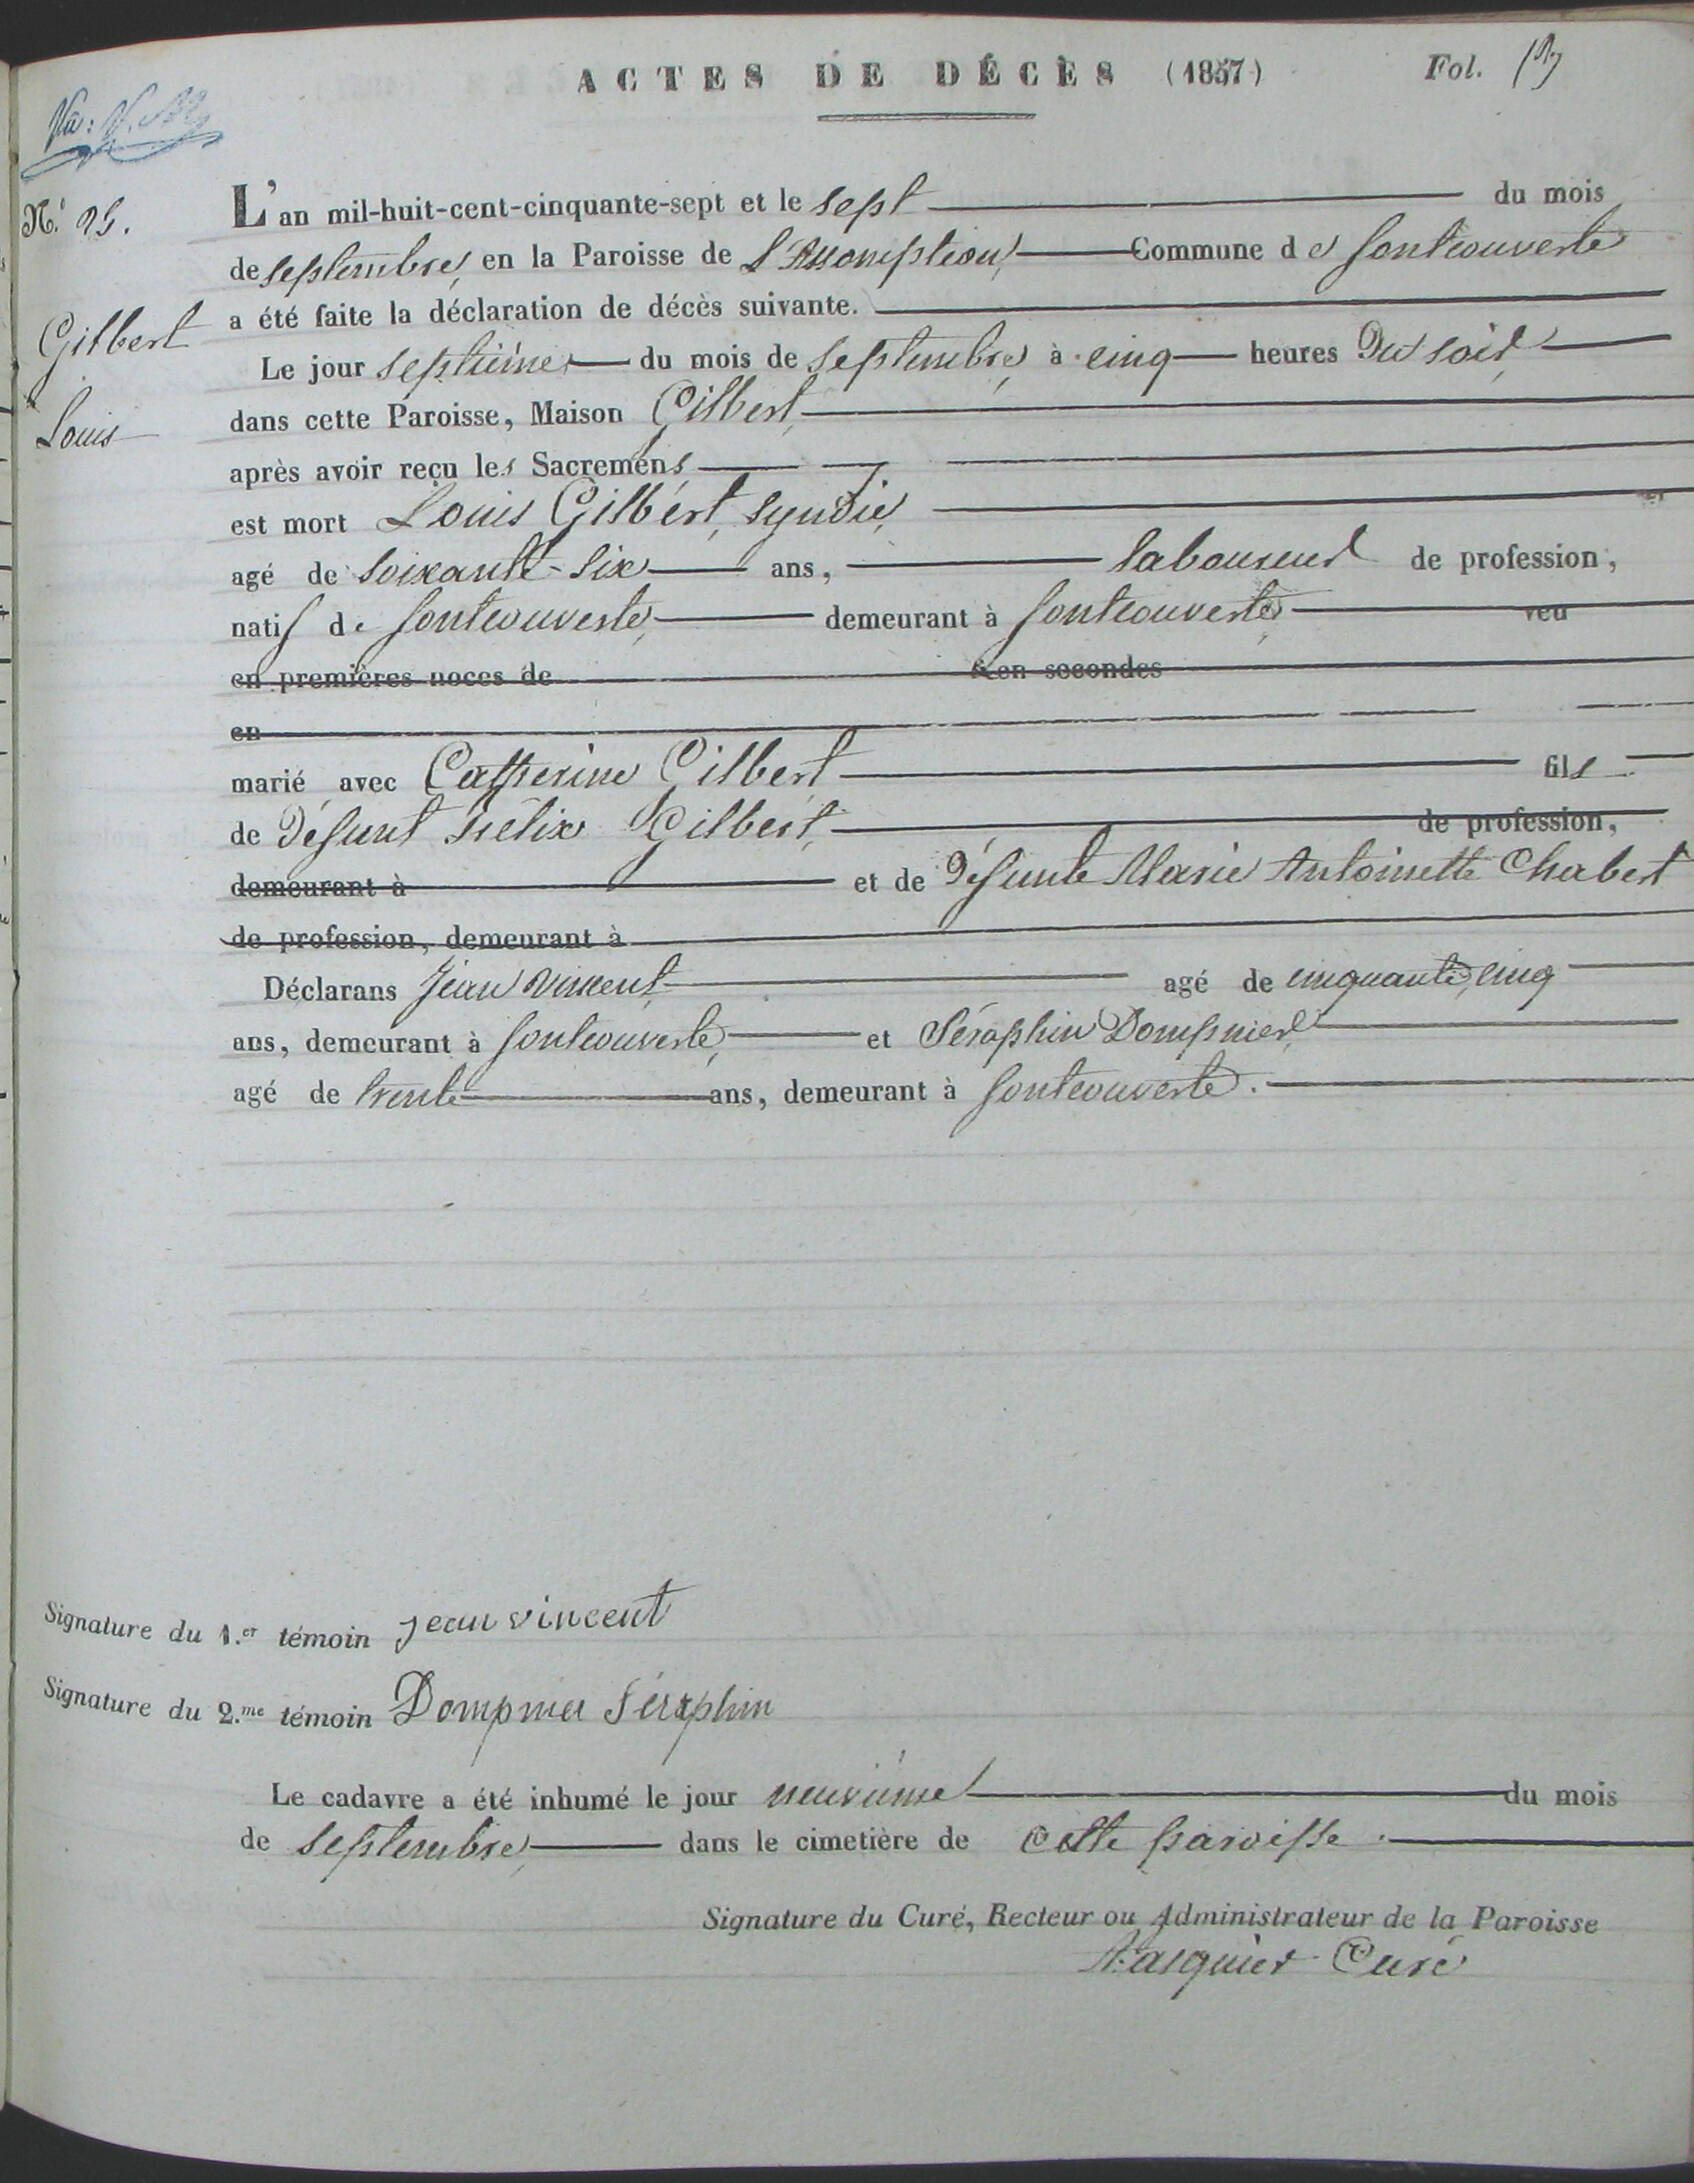 ACTES DE DÉCÈS (1857) Fol.
N.° 25.
L'an mil-huit-cent-cinquante-sept et le sept du mois
de septembre, en la Paroisse de L'Assomption, Commune de fontcouverte
a été faite la déclaration de décès suivante.
Gilbert
Le jour septième du mois de septembre, à cinq heures Du soir,
dans cette Paroisse, Maison Gilbert,
Louis
après avoir reçu les Sacremens
est mort Louis Gilbert, syndic,
agé de soixante-six ans, laboureur de profession,
natif de fontcouverte, demeurant à fontcouverte, veu
en premières noces de & en secondes
en
marié avec Catherine Gilbert fils
de Défunt Félix Gilbert, de profession,
demeurant à et de Défunte Marie Antoinette Chabert
de profession, demeurant à
Déclarans Jean Vincent, agé de cinquante, cinq
ans, demeurant à fontcouverte, et Séraphin Dompnier,
agé de trente ans, demeurant à fontcouverte.
Signature du 1.er témoin jean vincent
Signature du 2.me témoin Dompnier Séraphin
Le cadavre a été inhumé le jour neuvième du mois
de septembre, dans le cimetière de cette paroisse.
Signature du Curé, Recteur ou Administrateur de la Paroisse
Curé